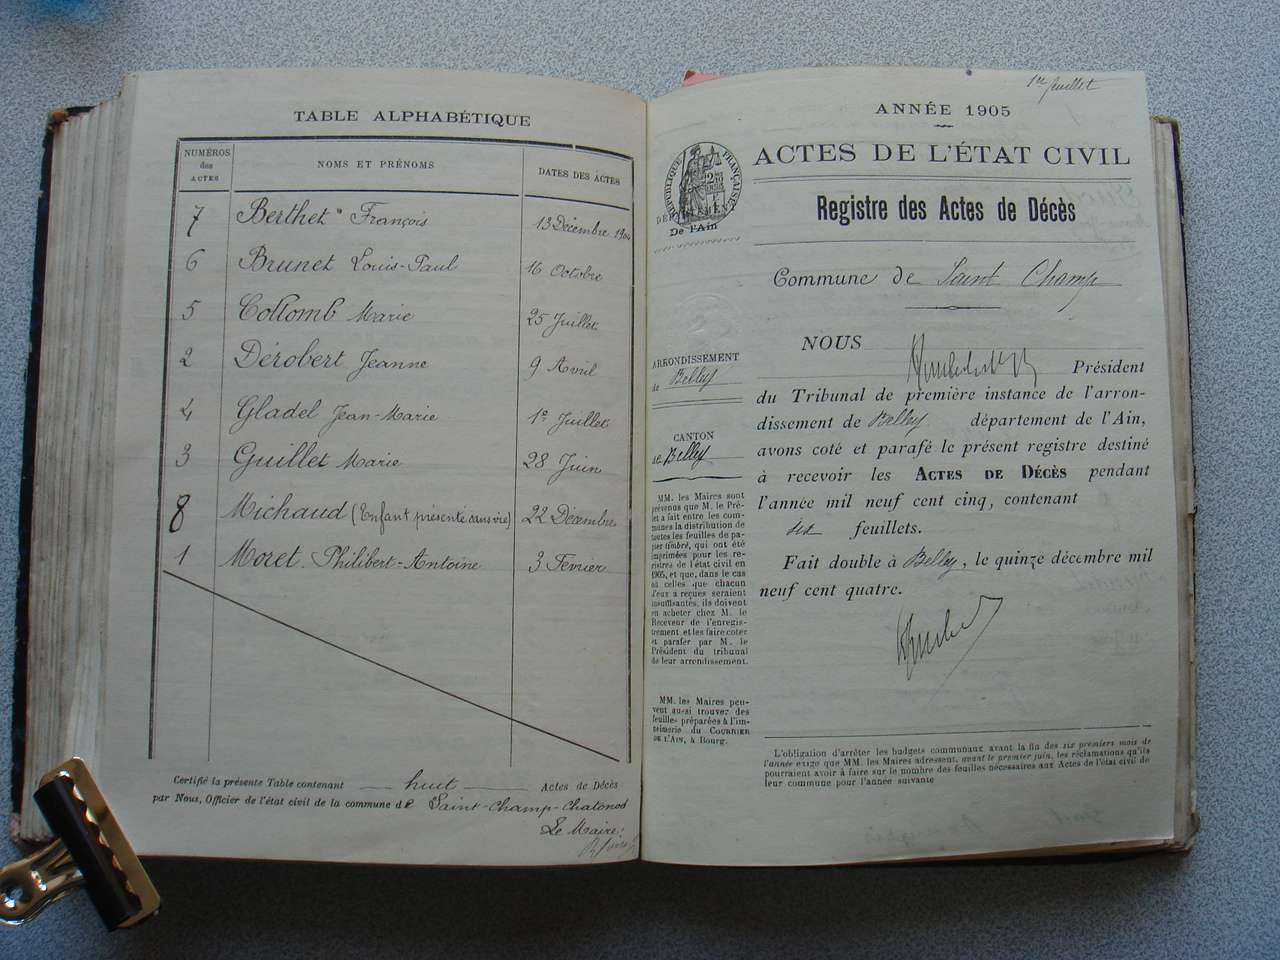 TABLE ALPHABÉTIQUE
NUMÉROS des ACTES NOMS ET PRÉNOMS DATES DES ACTES
7 Berthet François 13 Décembre 1904
6 Brunet Louis-Paul 16 Octobre
5 Collomb Marie 25 Juillet
2 Dérobert Jeanne 9 Avril
4 Gladel Jean-Marie 1e Juillet
3 Guillet Marie 28 Juin
8 Michaud (Enfant présenté sans vie) 22 Décembre
1 Moret Philibert-Antoine 3 Février
Certifié la présente Table contenant huit Actes de Décès
par Nous, Officier de l'état civil de la commune de Saint-Champ-Chatonod
Le Maire:
1er feuillet
ANNÉE 1905
ACTES DE L'ÉTAT CIVIL
Registre des Actes de Décès
RÉPUBLIQUE FRANÇAISE
DÉPARTEMENT
De l'Ain
Commune de Saint Champ
ARRONDISSEMENT
de Belley
CANTON
de Belley
MM. les Maires sont
prévenus que M. le Pré-
fet a fait entre les com-
munes la distribution de
toutes les feuilles de pa-
pier timbré, qui ont été
imprimées pour les re-
gistres de l'état civil en
1905, et que, dans le cas
où celles que chacun
d'eux a reçues seraient
insuffisantes, ils doivent
en acheter chez M. le
Receveur de l'enregis-
trement et les faire coter
et parafer par M. le
Président du tribunal
de leur arrondissement.
MM. les Maires peu-
vent aussi trouver des
feuilles préparées à l'im-
primerie du COURRIER
DE L'AIN, à Bourg.
NOUS
Président
du Tribunal de première instance de l'arron-
dissement de Belley département de l'Ain,
avons coté et parafé le présent registre destiné
à recevoir les ACTES DE DÉCÈS pendant
l'année mil neuf cent cinq, contenant
six feuillets.
Fait double à Belley, le quinze décembre mil
neuf cent quatre.
L'obligation d'arrêter les budgets communaux avant la fin des six premiers mois de
l'année exige que MM. les Maires adressent, avant le premier juin, les réclamations qu'ils
pourraient avoir à faire sur le nombre des feuilles nécessaires aux Actes de l'état civil de
leur commune pour l'année suivante